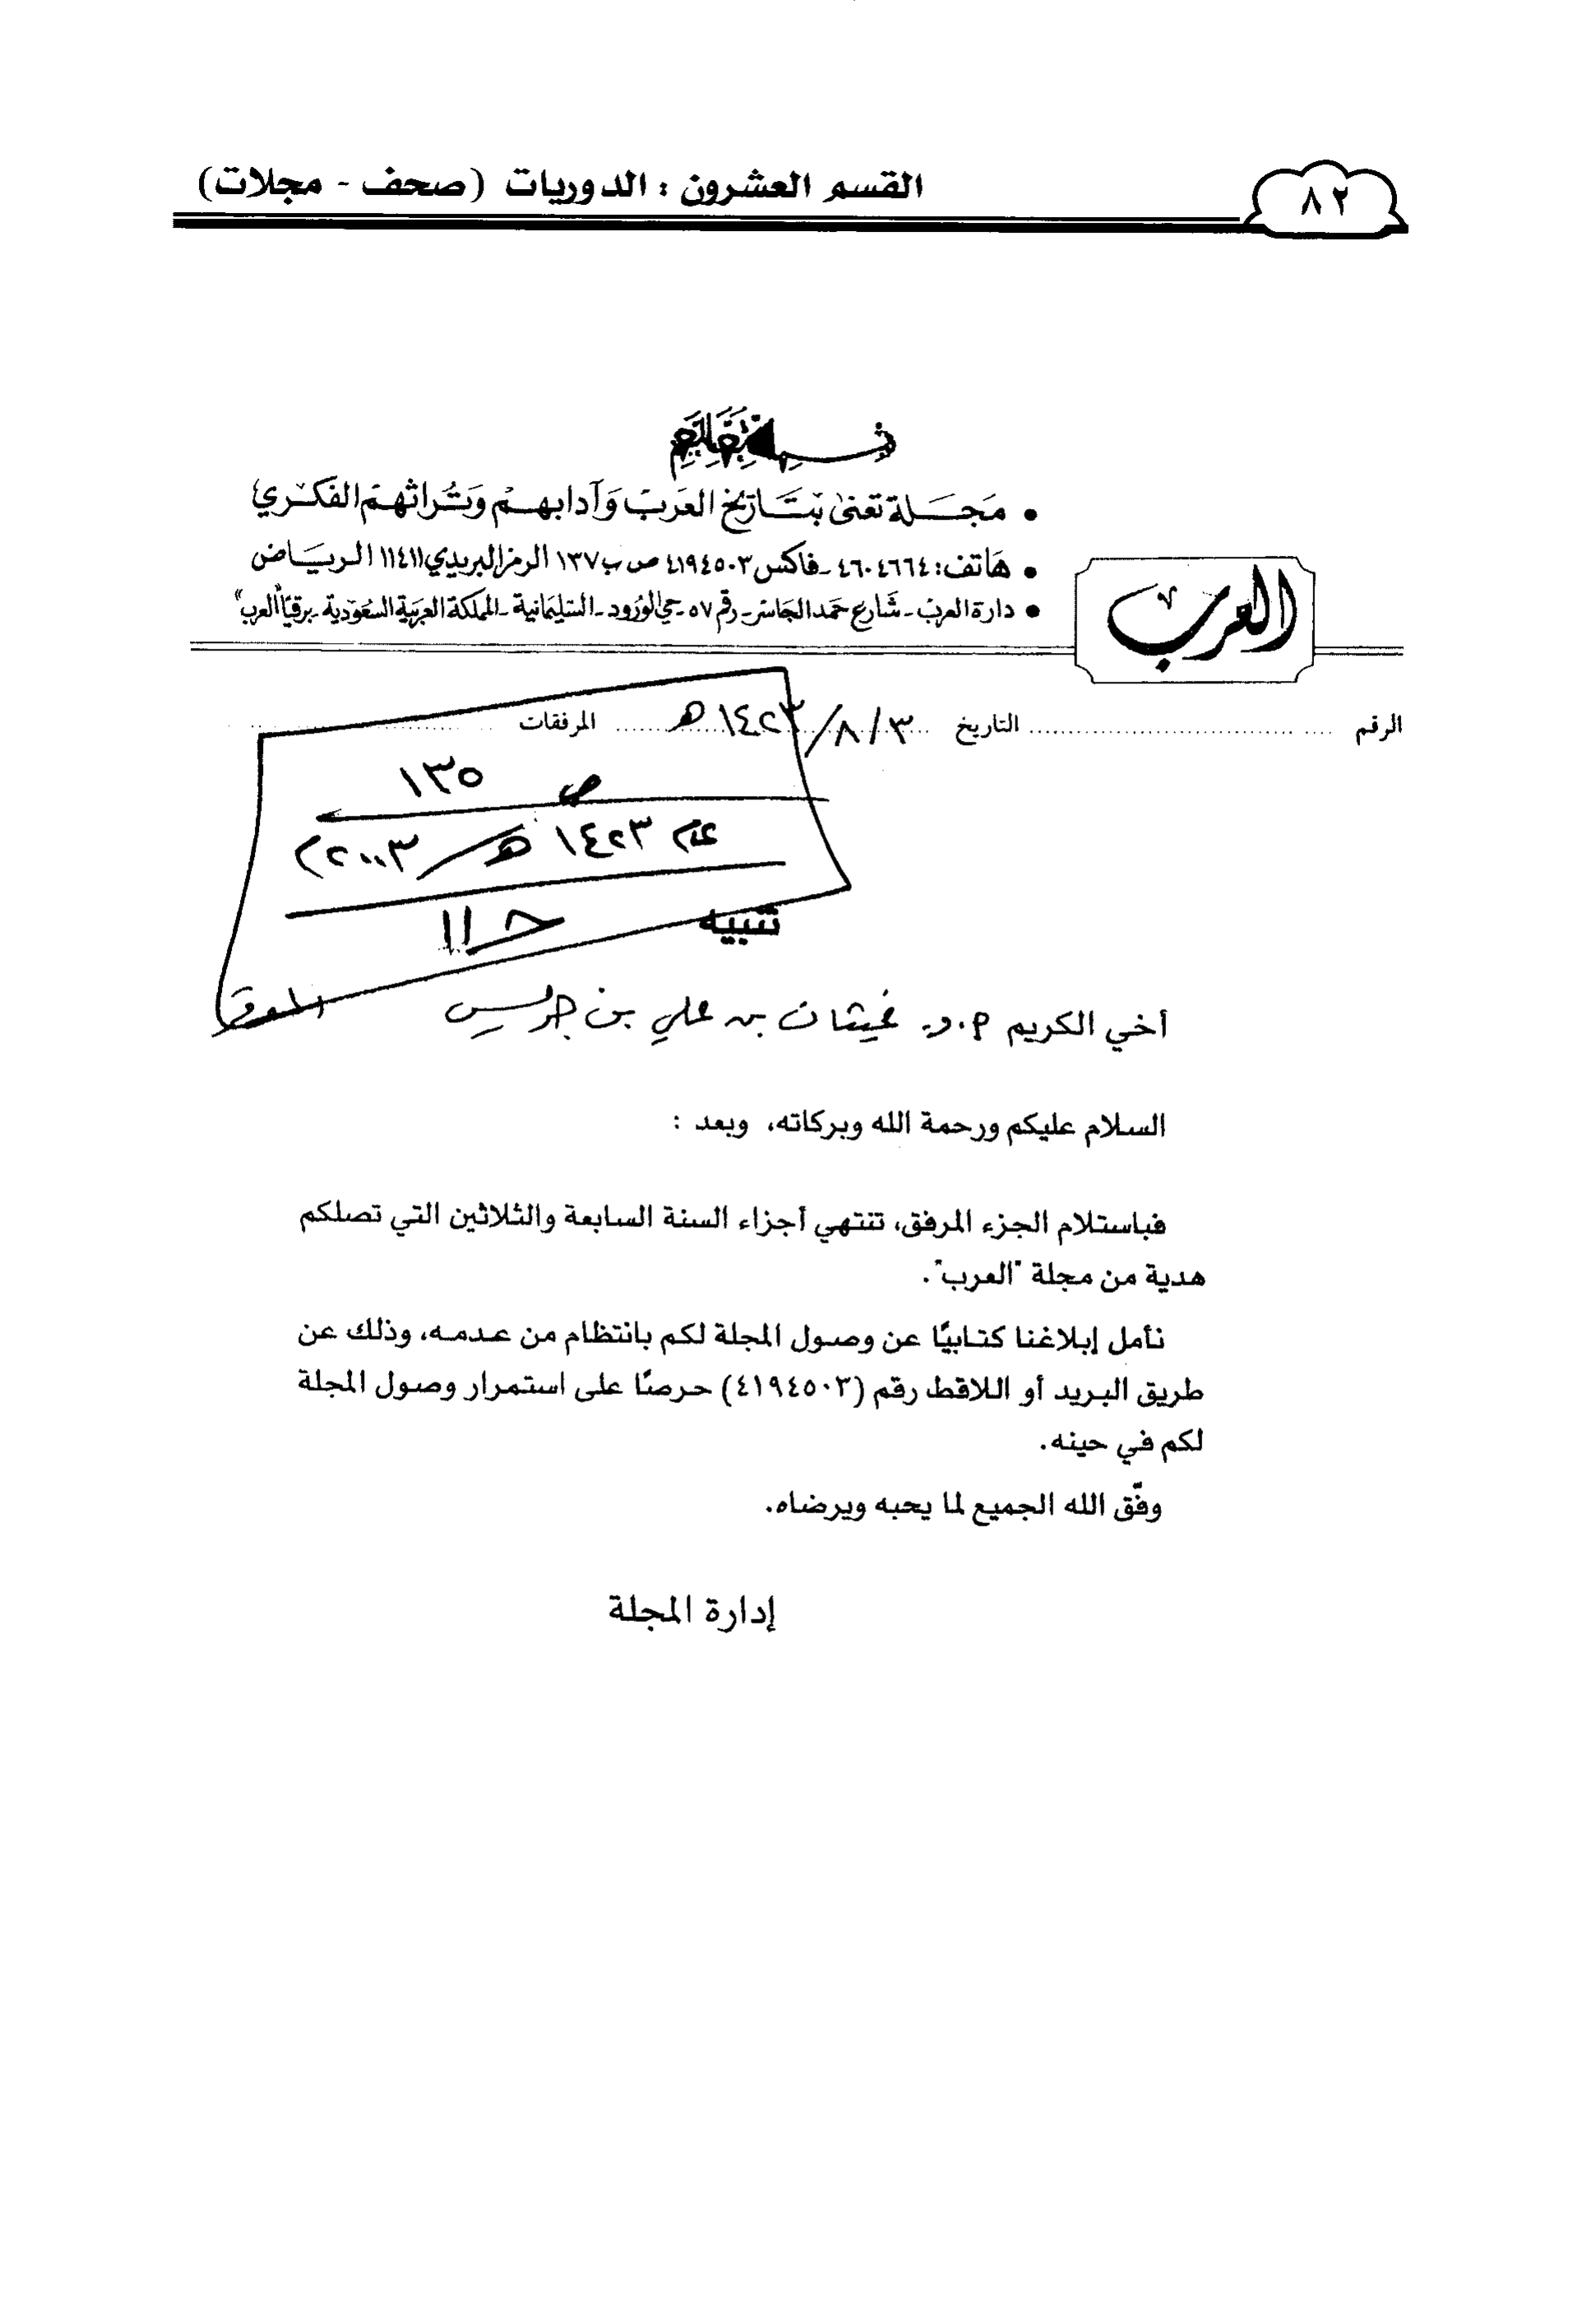 ٨٢
القسم العشرون : الدوريات (صحف - مجلات)
• مَجَلة تعنىٰ بتَاريخ العَرب وَآدابهم وَتُراثهم الفكري
• هَاتف: ٤٦٠٤٦٦٤ - فاكس ٤١٩٤٥٠٣ ص ب ١٣٧ الرمز البريدي ١١٤١١ الريَاض
• دارة العرب - شَارع حمَد الجَاسر - رقم ٥٧ - حي الوُرود - السليمَانية - المملكة العربَية السعُودية - برقيًا "العرب"
العرب
الرقم ........ التاريخ ٣ / ٨ / ١٤٢٣ هـ ........ المرفقات ........
ص ١٣٥
عام ١٤٢٣ هـ / ٢٠٠٣م
حـ ١١
تنبيه
أخي الكريم أ.د. غيثان بن علي بن جريس الموقر
السلام عليكم ورحمة الله وبركاته، وبعد :
فباستلام الجزء المرفق، تنتهي أجزاء السنة السابعة والثلاثين التي تصلكم
هدية من مجلة "العرب".
نأمل إبلاغنا كتابيًا عن وصول المجلة لكم بانتظام من عدمه، وذلك عن
طريق البريد أو اللاقط رقم (٤١٩٤٥٠٣) حرصًا على استمرار وصول المجلة
لكم في حينه.
وفّق الله الجميع لما يحبه ويرضاه.
إدارة المجلة